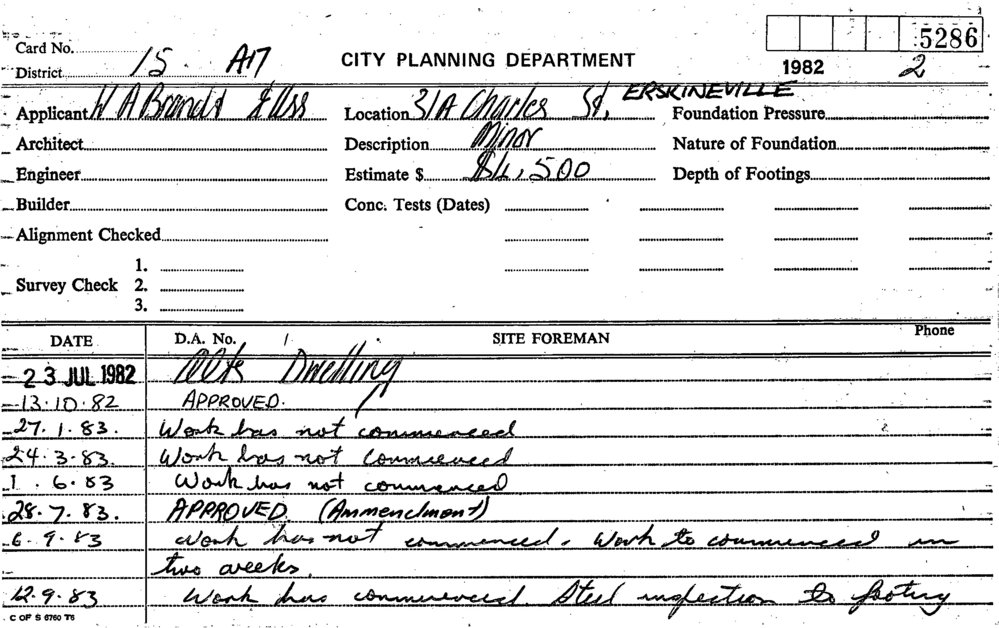 Card No. 5286
District 15 A17 CITY PLANNING DEPARTMENT 1982 2
Applicant W A Brandt & Ass Location 31A Charles St, ERSKINEVILLE Foundation Pressure
Architect Description Minor Nature of Foundation
Engineer Estimate $ $4,500 Depth of Footings
Builder Conc. Tests (Dates)
Alignment Checked
1.
Survey Check 2.
3.
DATE D.A. No. SITE FOREMAN Phone
23 JUL 1982 Dwelling
13.10.82 APPROVED.
27.1.83. Work has not commenced
24.3.83. Work has not commenced
1.6.83 Work has not commenced
28.7.83. APPROVED (Ammendment)
6.9.83 Work has not commenced. Work to commenced in
two weeks.
12.9.83 Work has commenced. Steel inspection to footing
C OF S 6760 T6